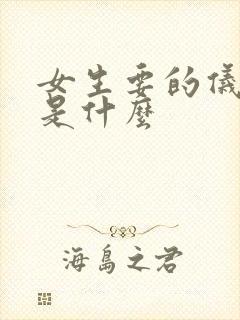 女生要的儀
是什麼
海島之君